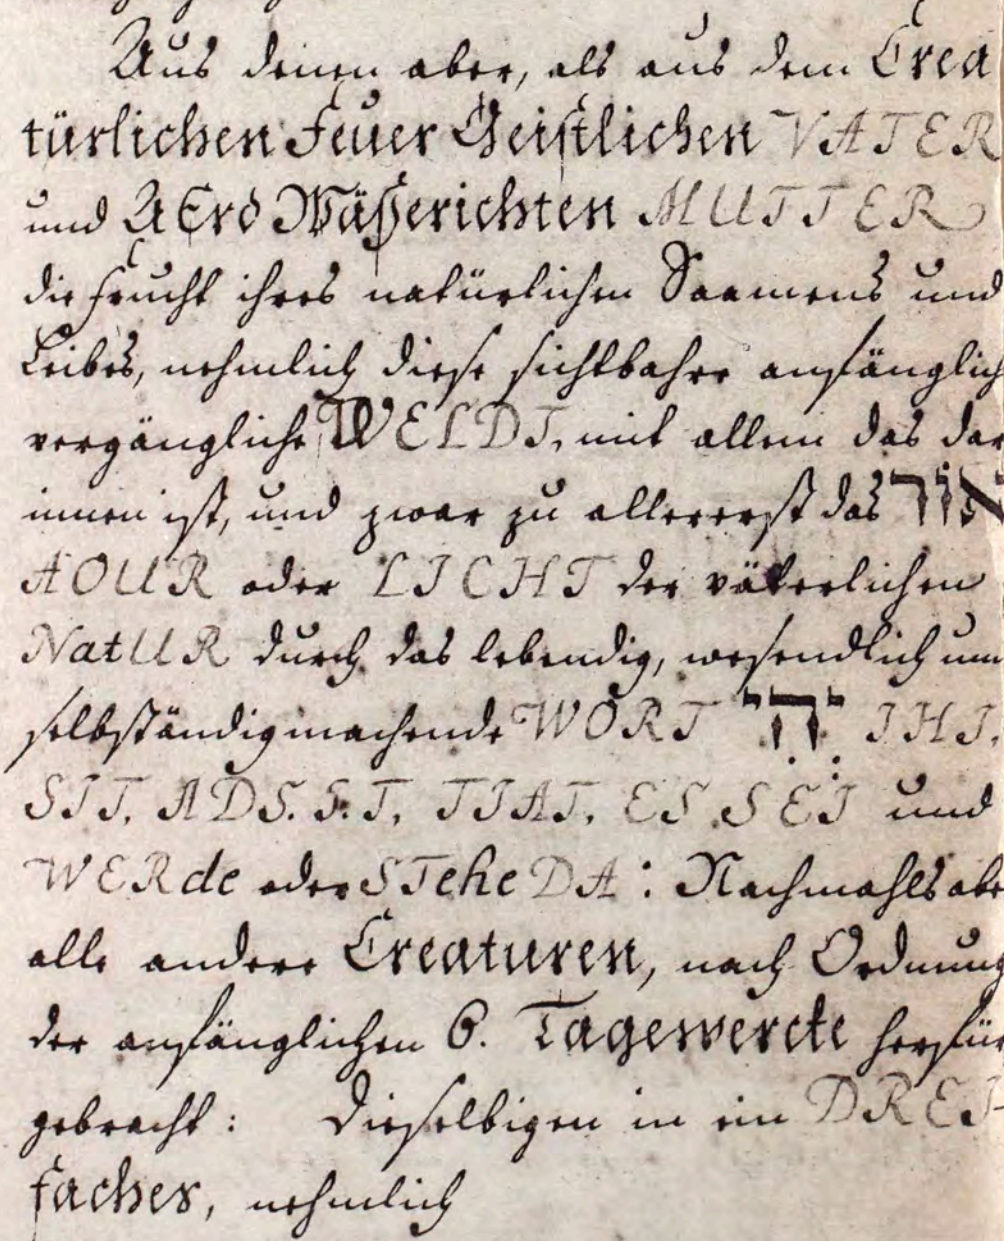 Aus denen aber, als aus dem Crea
türlichen Feuer Geistlichen VATER
und Erd Wäßerichten MUTTER
die Frucht ihres natürlichen Saamens und
Leibes, nehmlich diese sichtbahre anfänglich
vergängliche WELDT, mit allem das dar
innen ist, und zwar zu allererst das אור
AOUR oder LICHT der väterlichen
NatUR durch das lebendig, wesendlich und
selbständigmachende WORT יהי IHI.
SIT, ADS. F. T, FIAT, ES SEI und
WERde oder STehe DA: Nachmahls aber
alle andere Creaturen, nach Ordnung
der anfänglichen 6. Tagewercke herfür
gebracht: Dieselbigen in ein DREI-
faches, nehmlich